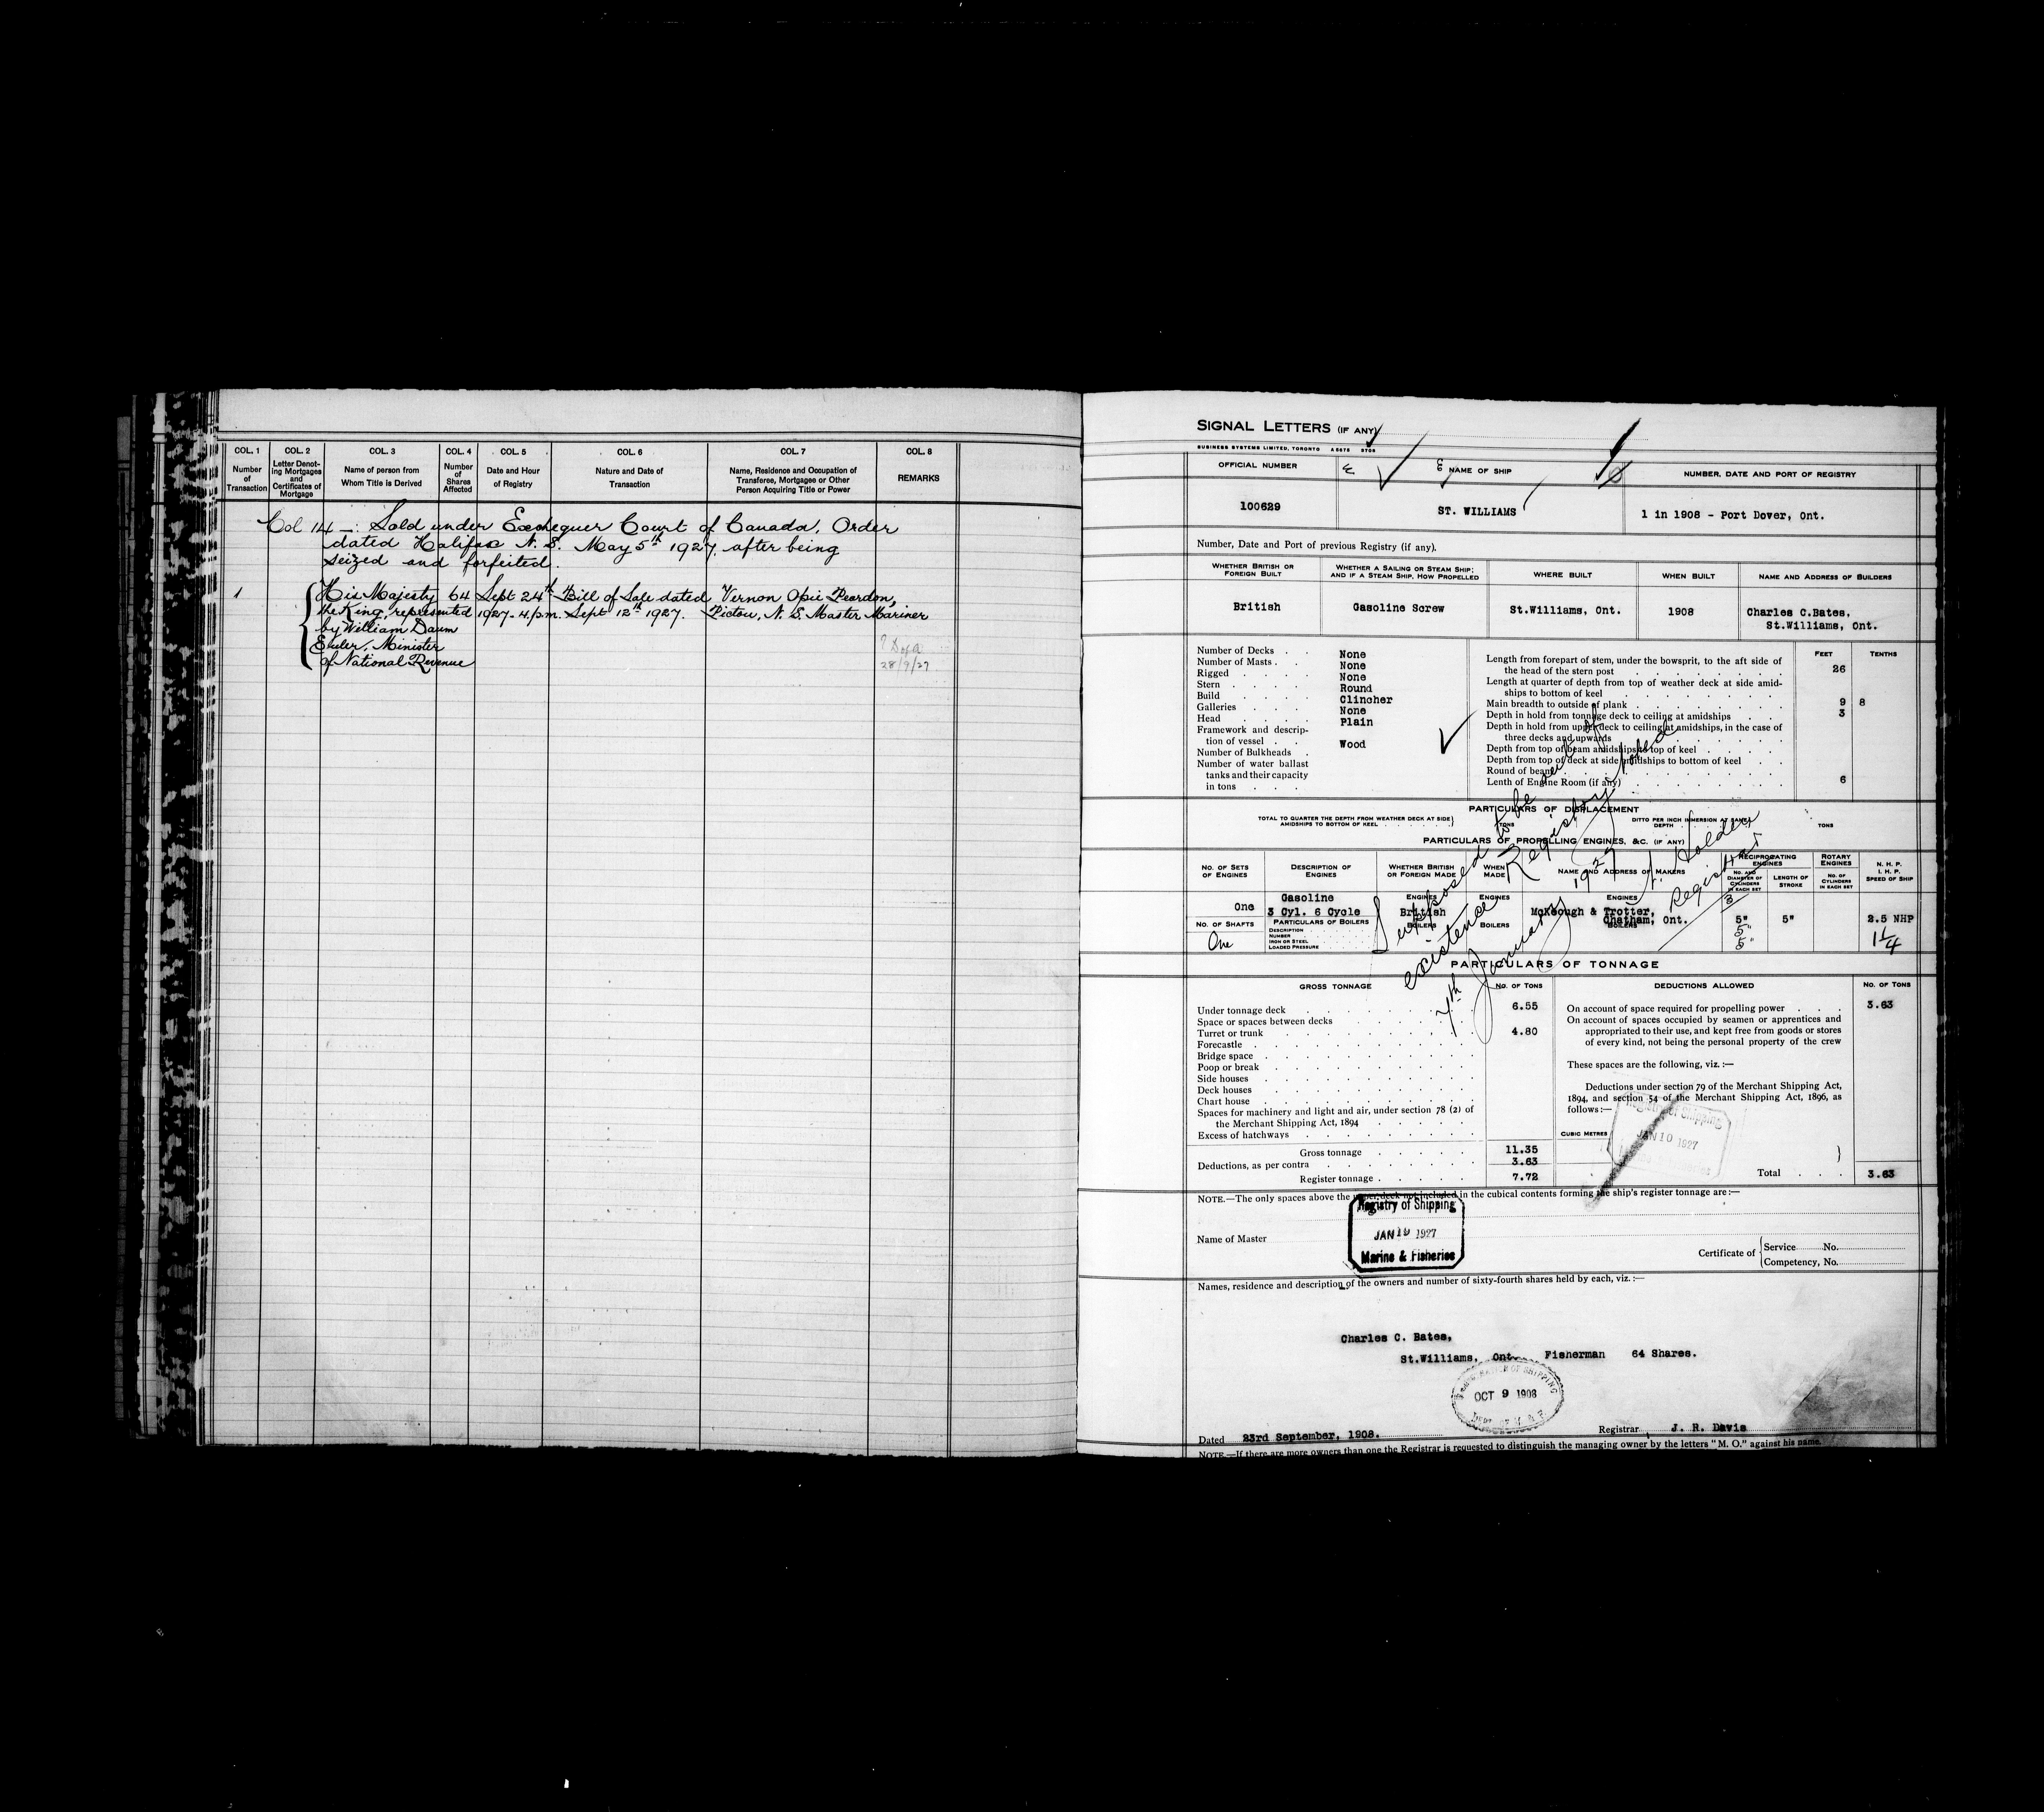 COL. 1 COL. 2 COL. 3 COL. 4 COL. 5 COL. 6 COL. 7 COL. 8
Number of Transaction
Letter Denoting Mortgages and Certificates of Mortgage
Name of person from Whom Title is Derived
Number of Shares Affected
Date and Hour of Registry
Nature and Date of Transaction
Name, Residence and Occupation of Transferee, Mortgagee or Other Person Acquiring Title or Power
REMARKS
Col 14 -: Sold under Exchequer Court of Canada, Order
dated Halifax N. S. May 5th 1927, after being
seized and forfeited.
1 His Majesty 64 Sept 24th Bill of Sale dated Vernon Opie Peardon,
the King, represented 1927-4 p.m. Sept 12th 1927. Pictou, N. S. Master Mariner
by William Daum
Euler, Minister
of National Revenue
28/9/27
SIGNAL LETTERS (IF ANY)
BUSINESS SYSTEMS LIMITED, TORONTO
OFFICIAL NUMBER NAME OF SHIP NUMBER, DATE AND PORT OF REGISTRY
100629 ST. WILLIAMS 1 in 1908 - Port Dover, Ont.
Number, Date and Port of previous Registry (if any).
WHETHER BRITISH OR FOREIGN BUILT
WHETHER A SAILING OR STEAM SHIP; AND IF A STEAM SHIP, HOW PROPELLED
WHERE BUILT
WHEN BUILT
NAME AND ADDRESS OF BUILDERS
British Gasoline Screw St.Williams, Ont. 1908 Charles C.Bates.
St.Williams, Ont.
Number of Decks . . None
Number of Masts . . None
Rigged . . . . None
Stern . . . . Round
Build . . . . Clincher
Galleries . . . . None
Head . . . . Plain
Framework and description of vessel . . Wood
Number of Bulkheads .
Number of water ballast
tanks and their capacity
in tons . . .
FEET TENTHS
Length from forepart of stem, under the bowsprit, to the aft side of
the head of the stern post 26
Length at quarter of depth from top of weather deck at side amidships to bottom of keel
Main breadth to outside of plank 9 8
Depth in hold from tonnage deck to ceiling at amidships 3
Depth in hold from upper deck to ceiling at amidships, in the case of
three decks and upwards
Depth from top of beam amidships to top of keel
Depth from top of deck at side amidships to bottom of keel
Round of beam
Lenth of Engine Room (if any) 6
PARTICULARS OF DISPLACEMENT
TOTAL TO QUARTER THE DEPTH FROM WEATHER DECK AT SIDE AMIDSHIPS TO BOTTOM OF KEEL TONS
DITTO PER INCH IMMERSION AT SAME DEPTH TONS
PARTICULARS OF PROPELLING ENGINES, &C. (IF ANY)
NO. OF SETS OF ENGINES
DESCRIPTION OF ENGINES
WHETHER BRITISH OR FOREIGN MADE
WHEN MADE
NAME AND ADDRESS OF MAKERS
RECIPROCATING ENGINES
NO. AND DIAMETER OF CYLINDERS IN EACH SET
LENGTH OF STROKE
ROTARY ENGINES
NO. OF CYLINDERS IN EACH SET
N. H. P.
I. H. P.
SPEED OF SHIP
Gasoline ENGINES ENGINES ENGINES 3
One 3 Cyl. 6 Cycle British McKeough & Trotter,
Chatham, Ont. 5" 5" 2.5 NHP
5"
5"
1¼
NO. OF SHAFTS PARTICULARS OF BOILERS BOILERS BOILERS BOILERS
One
DESCRIPTION
NUMBER
IRON OR STEEL
LOADED PRESSURE
Supposed to be out of
existence Registry closed
7th January 1927 J. Holden
Registrar
PARTICULARS OF TONNAGE
GROSS TONNAGE NO. OF TONS DEDUCTIONS ALLOWED NO. OF TONS
Under tonnage deck 6.55
Space or spaces between decks
Turret or trunk 4.80
Forecastle
Bridge space
Poop or break
Side houses
Deck houses
Chart house
Spaces for machinery and light and air, under section 78 (2) of
the Merchant Shipping Act, 1894
Excess of hatchways
Gross tonnage 11.35
Deductions, as per contra 3.63
Register tonnage 7.72
On account of space required for propelling power 3.63
On account of spaces occupied by seamen or apprentices and
appropriated to their use, and kept free from goods or stores
of every kind, not being the personal property of the crew
These spaces are the following, viz.:—
Deductions under section 79 of the Merchant Shipping Act,
1894, and section 54 of the Merchant Shipping Act, 1896, as
follows:—
CUBIC METRES
Registry of Shipping
JAN 10 1927
Total 3.63
NOTE.—The only spaces above the upper deck not included in the cubical contents forming the ship's register tonnage are:—
Registry of Shipping
JAN 10 1927
Marine & Fisheries
Name of Master
Certificate of Service No.
Competency, No.
Names, residence and description of the owners and number of sixty-fourth shares held by each, viz.:—
Charles C. Bates,
St.Williams, Ont. Fisherman 64 Shares.
OF SHIPPING
OCT 9 1908
DEPT. OF M. & F.
Dated 23rd September, 1908. Registrar J. R. Davis
NOTE.—If there are more owners than one the Registrar is requested to distinguish the managing owner by the letters "M. O." against his name.